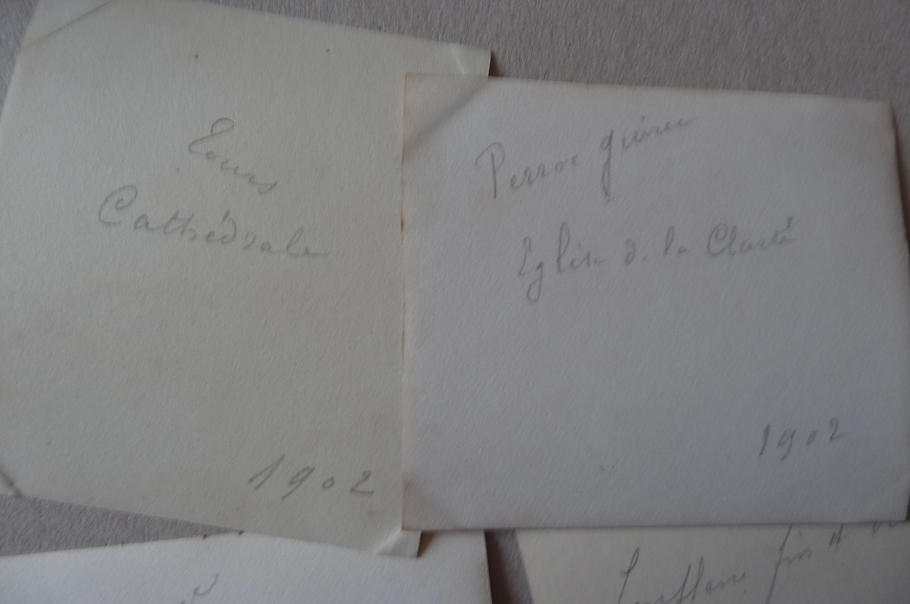 Tours
Cathédrale
1902
Perros guirec
Eglise de la Clarté
1902